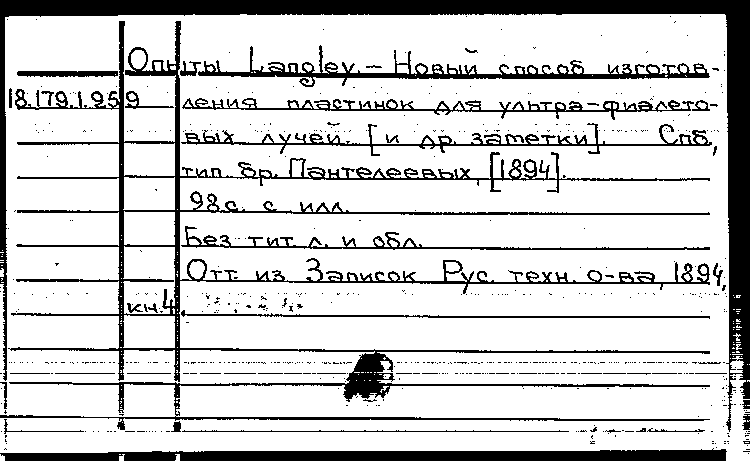 Опыты Langley. – Новый способ изготов-
18.179.1.259 ления пластинок для ультра-фиалето-
вых лучей. [и др. заметки]. Спб,
тип. бр. Пантелеевых, [1894].
98с. с илл.
Без тит. л. и обл.
Отт. из Записок Рус. техн. о-ва, 1894,
кн.4.